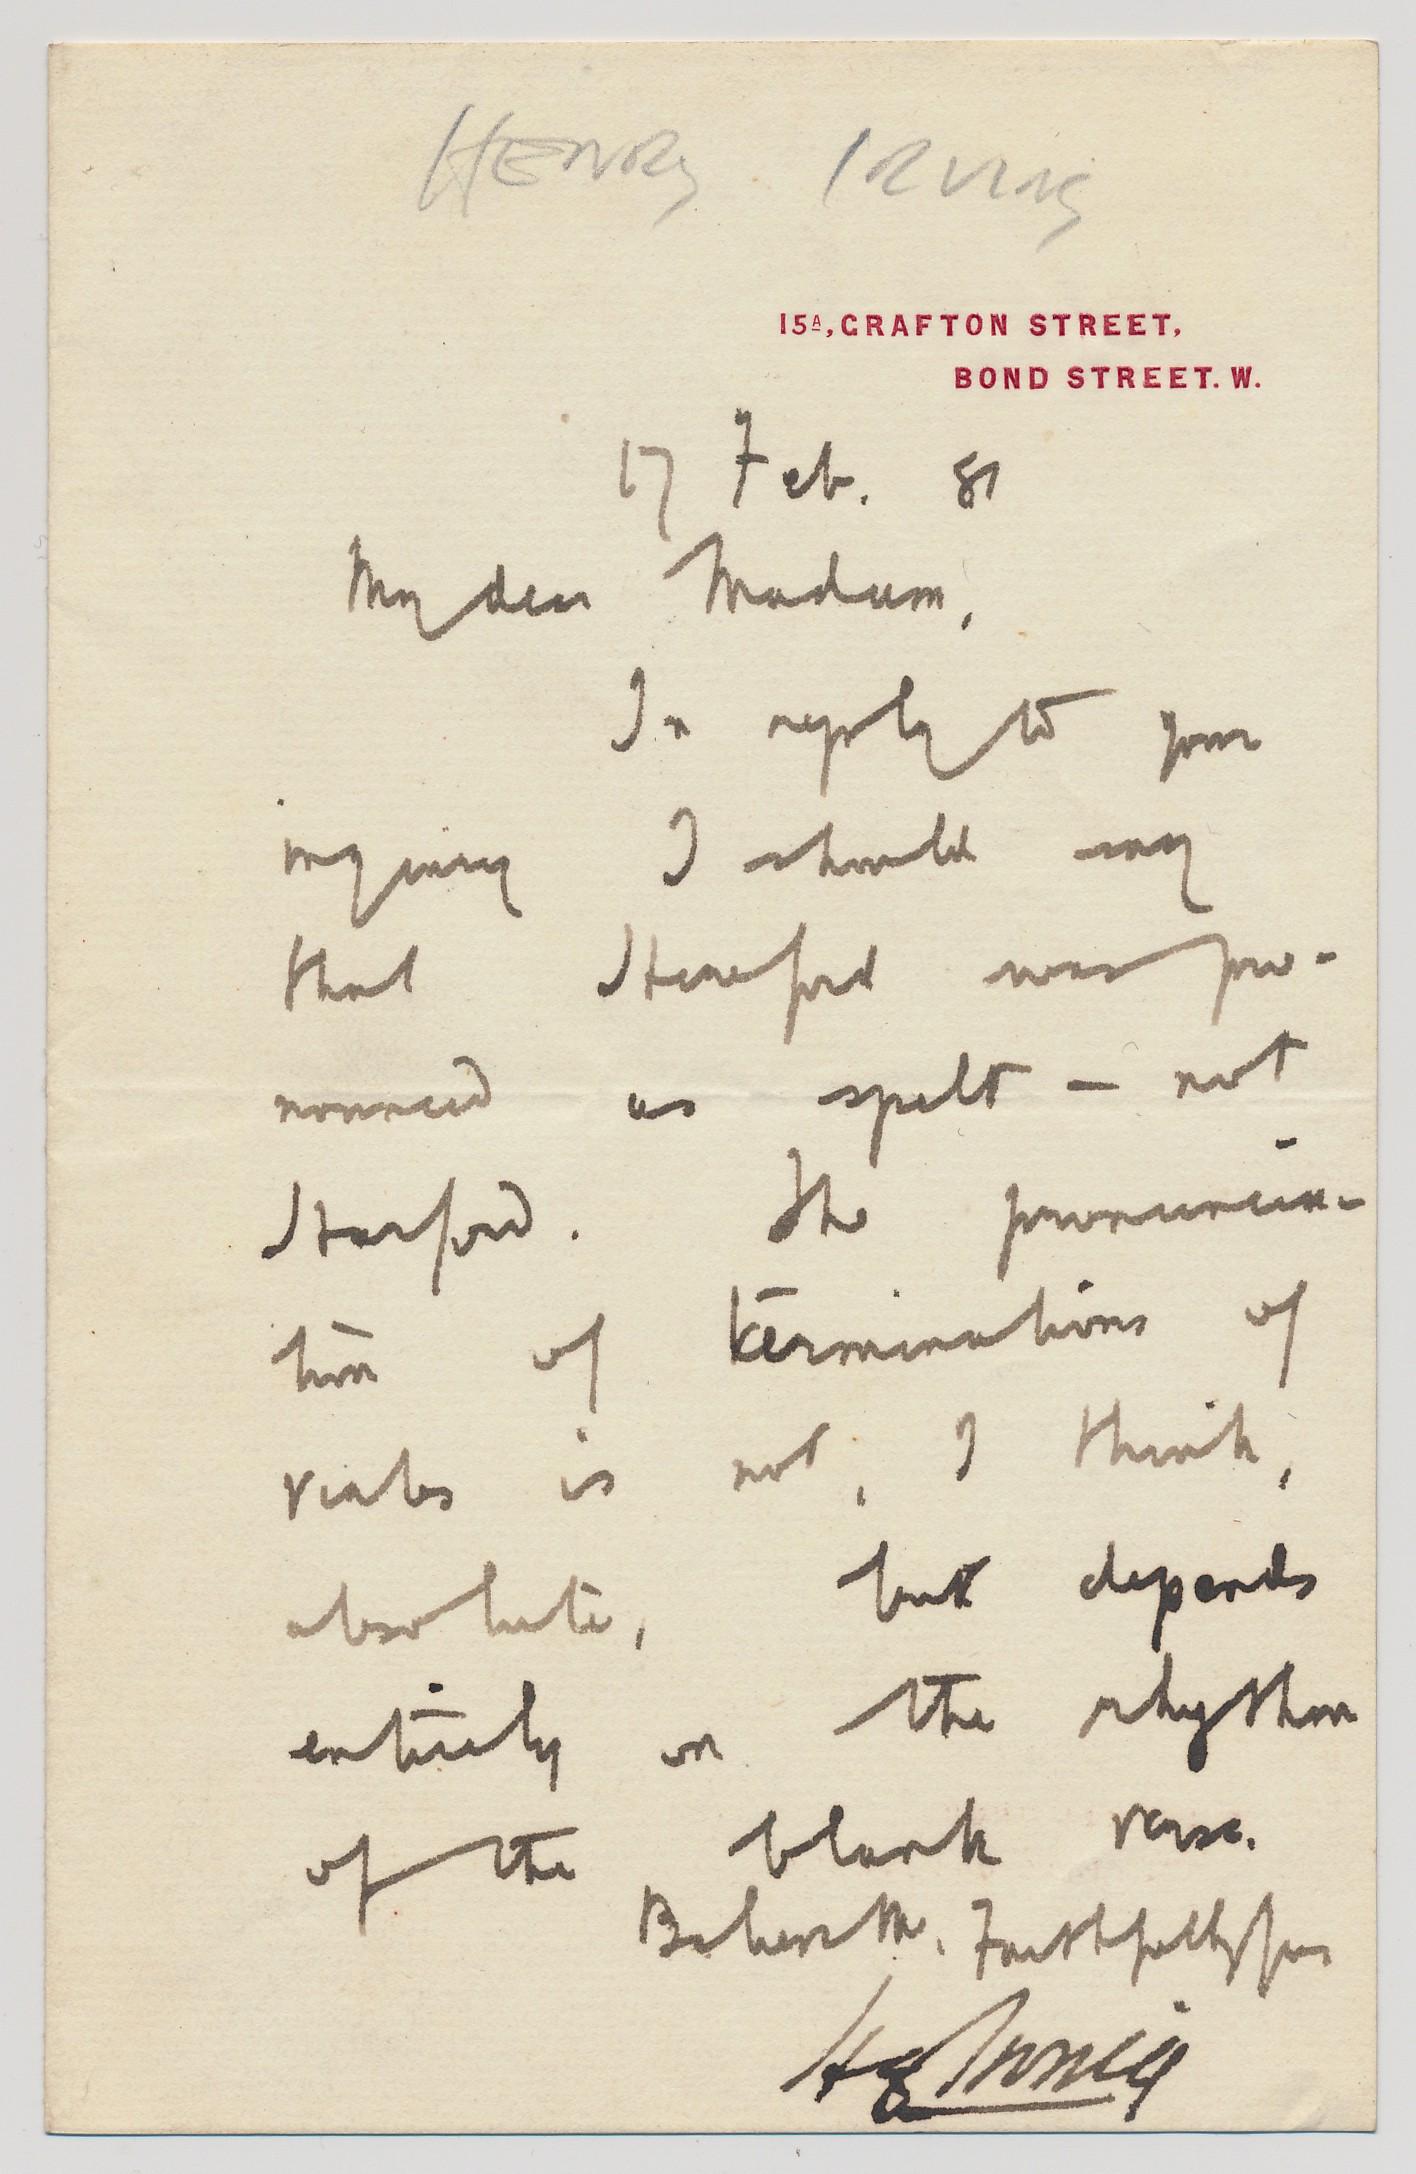 HENRY IRVING
15A, GRAFTON STREET,
BOND STREET. W.
17 Feb. 81
My dear Madam,
In reply to your
inquiry I should say
that Hereford was pro-
nounced as spelt – not
Harford. The pronuncia-
tion of terminations of
verbs is not, I think,
absolute, but depends
entirely on the rhythm
of the blank verse.
Believe me, Faithfully yours
H Irving